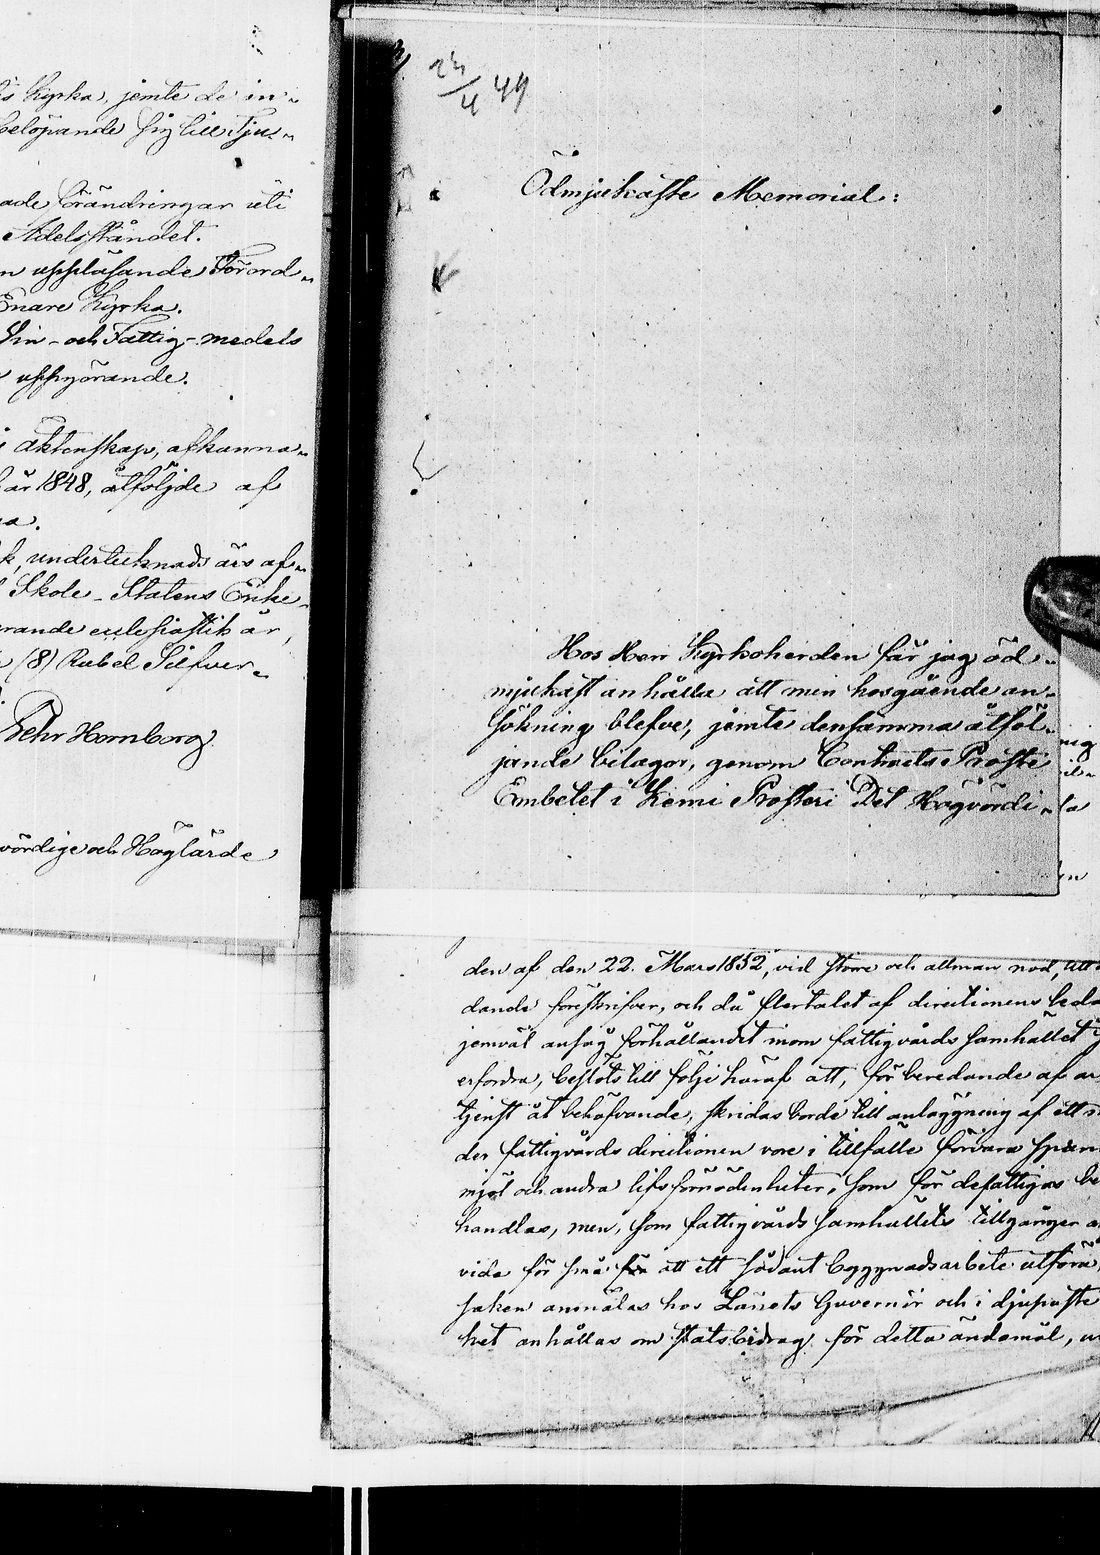 s Kyrka, jemte de in-
belöpande sig till Tju-
ade förändringar uti
Adelsståndet.
n uppläsande Förord-
Enare Kyrka.
Vin- och Fattig-medels
uppgörande.
äktenskap, afkunna-
år 1848, åtföljde af
na.
k, undertecknads års af-
Skole-Statens Enke-
rande ecclesiastik år,
(8) Rubel Silfver-
Pehr Hornborg.
vördige och Höglärde
23/4 49
Ödmjukaste Memorial:
Hos Herr Kyrkoherden får jag öd-
mjukast anhålla att min hosgående an-
sökning blefve, jemte densamma åtföl-
jande bilagor, genom Contracts Prosts
Embetet i Kemi Prosteri Det Högvördi-
den af den 22. Mars 1852, vid större och allmän nöd, till
dande föreskrifver, och då flertalet af direktionens leda
jemväl ansåg förhållandet inom fattigvårds samhället
erfordra, beslöts till följe häraf att, för beredande af ar
tjenst åt behöfvande, skridas borde till anläggning af ett
der fattigvårds direktionen vore i tillfälle förvara span
mjöl och andra lifsförnödenheter, som för de fattigas be
handlas, men, som fattigvårds samhällets tillgångar a
vida för små för att ett sådant byggnadsarbete utföra,
saken anmälas hos Länets Guvernör och i djupaste
het anhållas om statsbidrag för detta ändamål, u